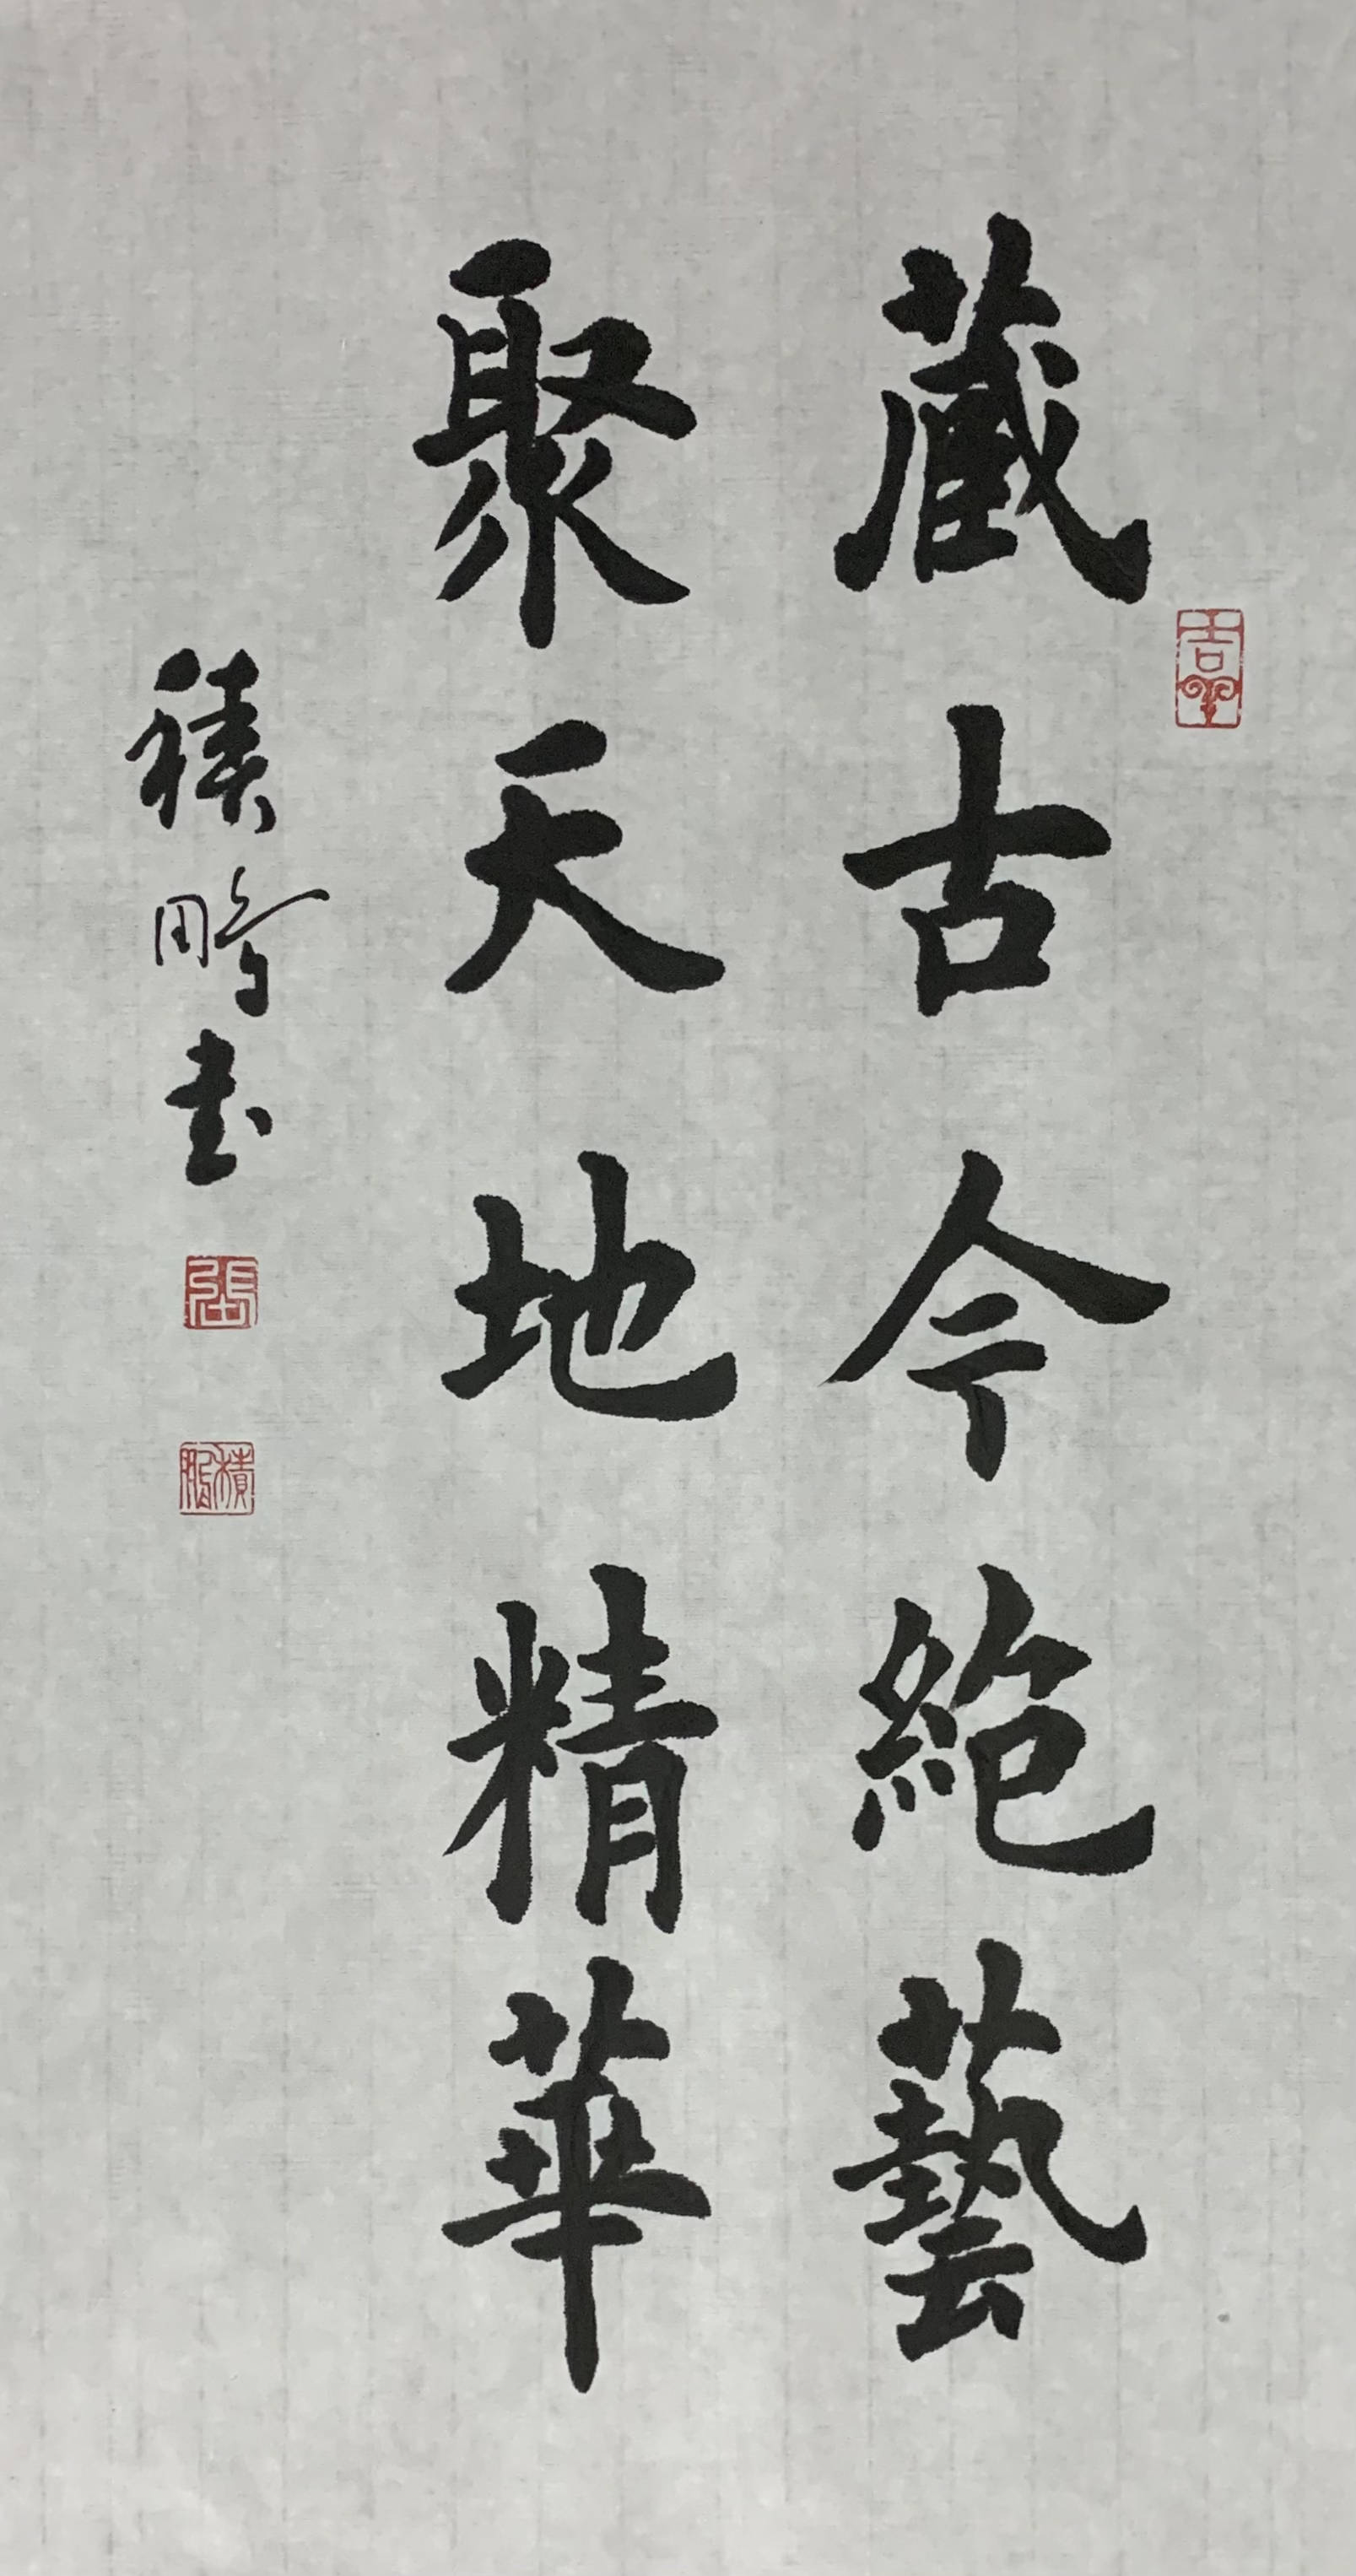 藏古今絕藝
聚天地精華
積鵬書
吉羊
張
積鵬